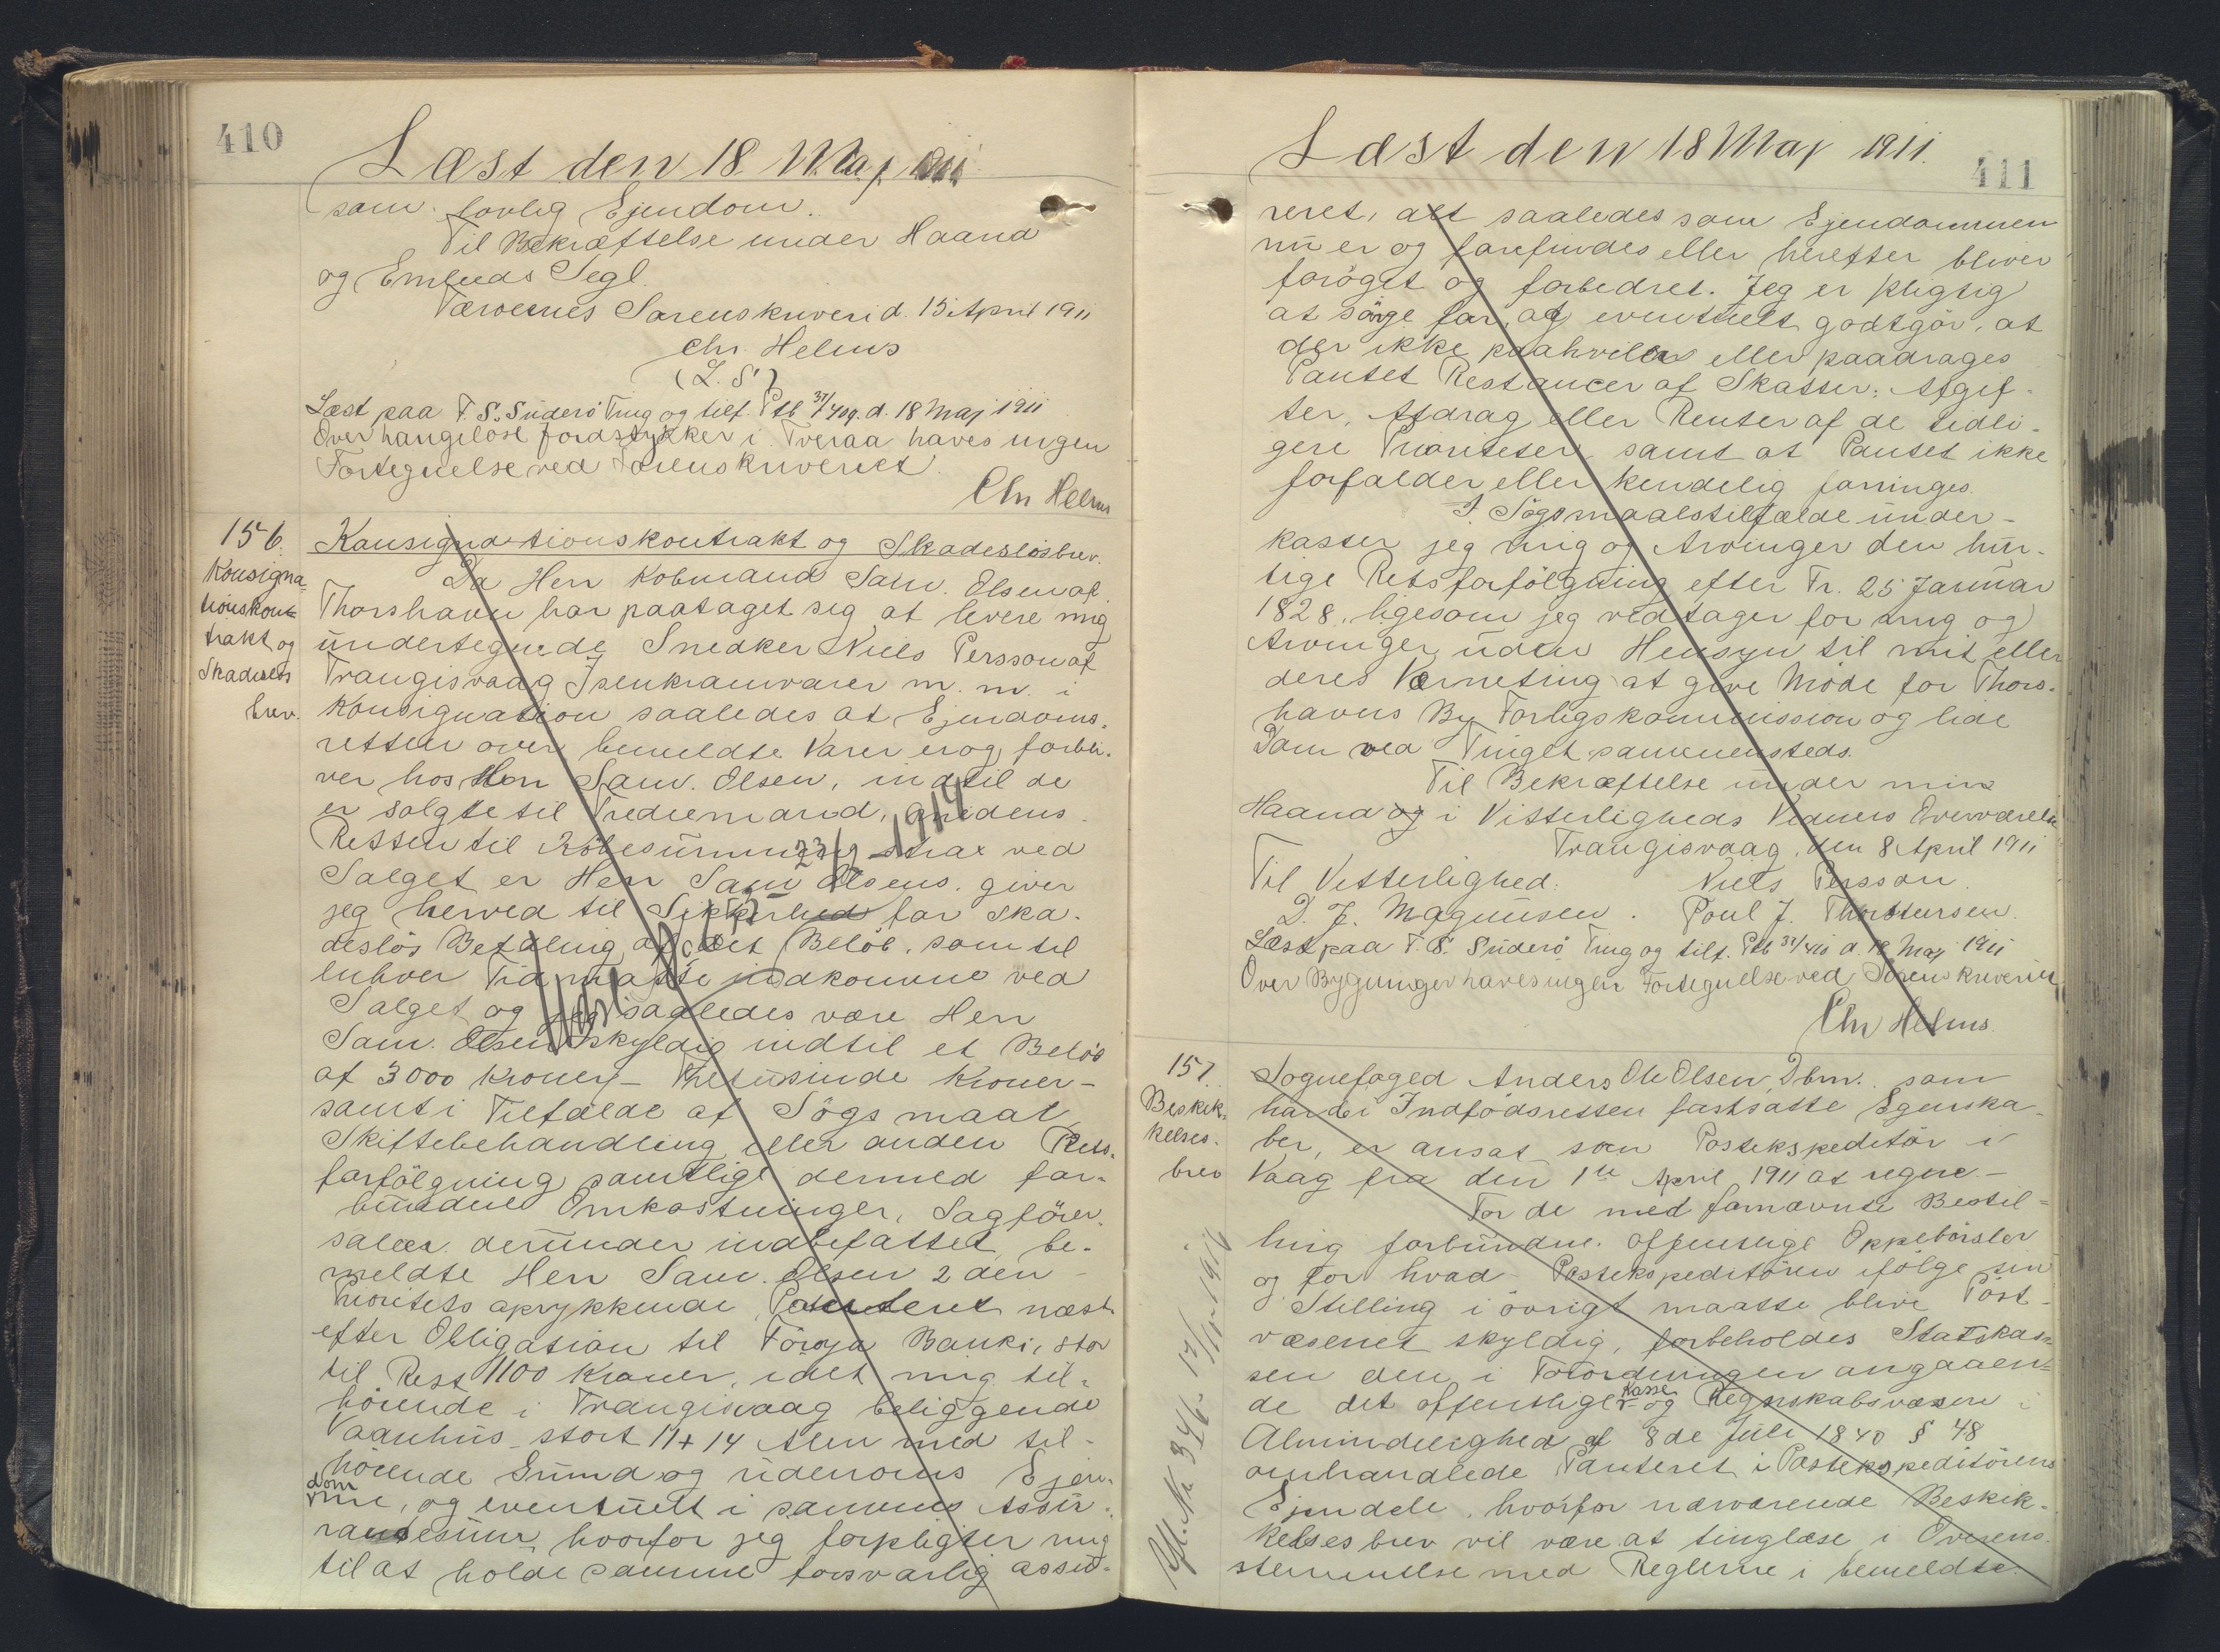 410
Læst den 18 Maj 1911
som lovlig Ejendom.
Til Bekræftelse under Haand
og Embeds Segl.
Færøernes Sorenskriveri d. 15 April 1911
Chr. Helms
(L. S.)
Læst paa F. S. Suderö Ting og tilf. Ptb 37/409. d. 18 Maj 1911
Over haugelöse Jordstykker i Tveraa haves ingen
Fortegnelse ved Sorenskriveriet.
Chr Helms
156.
Konsigna-
tionskon-
trakt og
Skadeslös
brev.
Konsignationskontrakt og Skadeslösbrev.
Da Herr Købmand Sam. Olsen af
Thorshavn har paataget sig at levere mig
undertegnede Snedker Niels Persson af
Trangisvaag Isenkramvarer m. m. i
Konsignation saaledes at Ejendoms-
retten over bemeldte Varer er og forbli-
ver hos Herr Sam. Olsen, indtil de
er solgte til Trediemand, medens
Retten til Købesummen strax ved
Salget er Herr Sam Olsens, giver
jeg herved til Sikkerhed for ska-
deslös Betaling af det Belöb, som til
enhver Tid maatte indkomme ved
Salget og jeg saaledes være Herr
Sam. Olsen skyldig indtil et Belöb
af 3000 Kroner – Tretusinde Kroner –
samt i Tilfælde af Sögsmaal
Skiftebehandling eller anden Rets-
forfölgning samtlige dermed for-
bundne Omkostninger, Sagförer-
salær derunder indbefattet, be-
meldte Herr Sam. Olsen 2den
Prioritets oprykkende Panteret næst
efter Obligation til Föroya Banki, stor
til Rest 1100 Kroner, i det mig til-
hörende i Trangisvaag beliggende
Vaanhus stort 11 + 14 Alen med til-
hörende Grund og udenoms Ejen-
domme, og eventuelt i sammes Assu-
rancesum, hvorfor jeg forpligter mig
til at holde samme forsvarlig assu-
Læst den 18 Maj 1911.
411
reret, alt saaledes som Ejendommen
nu er og forefindes eller herefter bliver
foröget og forbedret. Jeg er pligtig
at sörge for, og eventuelt godtgör, at
der ikke paahviler eller paadrages
Pantet Restancer af Skatter, Afgif-
ter, Afdrag eller Renter af de tidli-
gere Prioriteter, samt at Pantet ikke
forfalder eller kendelig forringes.
I Sögsmaalstilfælde under-
kaster jeg mig og Arvinger den hur-
tige Retsforfölgning efter Fr. 25 Januar
1828, ligesom jeg vedtager for mig og
Arvinger uden Hensyn til mit eller
deres Værneting at give Möde for Thors-
havns By Forligskommission og lide
Dom ved Tinget sammensteds.
Til Bekræftelse under min
Haand og i Vitterligheds Vidners Overværelse
Trangisvaag, den 8 April 1911
Til Vitterlighed: Niels Persson.
D. J. Magnusen. Poul J. Thorsteinsen.
Læst paa F. S. Suderö Ting og tilf. Ptb 37/410 d. 18 Maj 1911
Over Bygninger haves ingen Fortegnelse ved Sorenskriveriet
Chr Helms.
157.
Beskik-
kelses-
brev
Sognefoged Anders Ole Olsen, Dbm. som
har de i Indfödsretten fastsatte Egenska-
ber, er ansat som Postekspeditör i
Vaag fra den 1te April 1911 at regne –
For de med fornævnte Bestil-
ling forbundne offentlige Oppebörsler
og for hvad Postekspeditören ifölge sin
Stilling i övrigt maatte blive Post-
væsenet skyldig, forbeholdes Statskas-
sen den i Forordningen angaaen-
de det offentlige Kasse- og Regnskabsvæsen i
Almindelighed af 8de Juli 1840 § 48
omhandlede Panteret i Postekspeditörens
Ejendele, hvorfor nærværende Beskik-
kelsesbrev vil være at tinglæse i Overens-
stemmelse med Reglerne i bemeldte